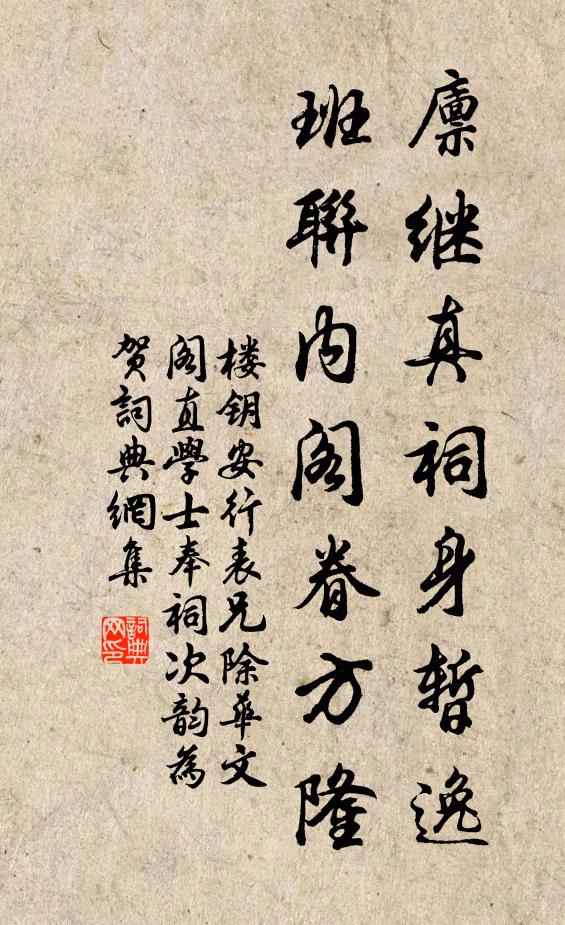 廪继真祠身暂逸
班聯内阁眷方隆
楼钥安行表兄除華文
阁直學士奉祠次韵為
贺詞典網集
詞典
网印